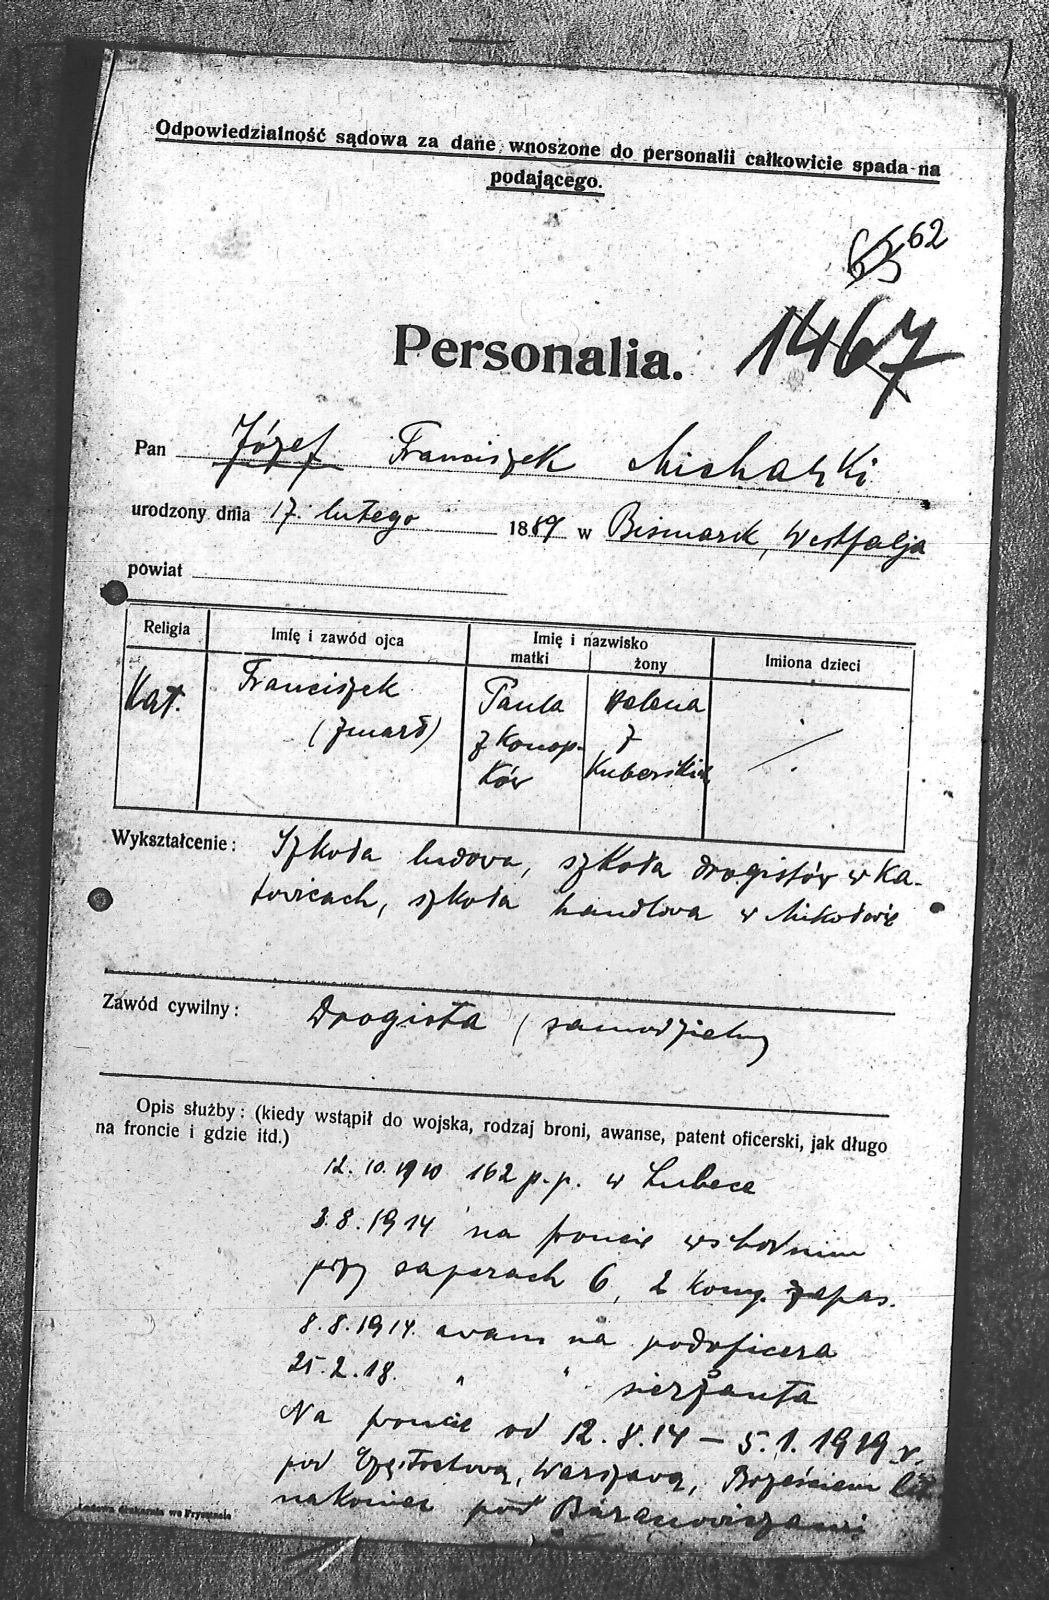 Odpowiedzialność sądowa za dane, wnoszone do personalii całkowicie spada na
podającego.
62
1467
Personalia.
Pan Józef Franciszek Michalski
urodzony dnia 17. lutego 1889 w Bismarck, Westfalja
powiat
Religia
Imię i zawód ojca
Imię i nazwisko
matki
żony
Imiona dzieci
Kat.
Franciszek
(zmarł)
Paula
z Konop-
ków
Helena
z
Kuberskich
Wykształcenie: Szkoła ludowa, szkoła drogistów w Ka-
towicach, szkoła handlowa w Mikołowie
Zawód cywilny: Drogista (samodzielny)
Opis służby: (kiedy wstąpił do wojska, rodzaj broni, awanse, patent oficerski, jak długo
na froncie i gdzie itd.)
12.10.1910 162 p.p. w Lubece
3.8.1914 na froncie wschodnim
przy saperach 6, 2 komp. zapas.
8.8.1914. awans na podoficera
25.2.18. " " sierżanta
Na froncie od 12.8.14 — 5.1.1919 r.
pod Częstochową, Warszawą, Brześciem lit.
nakoniec pod Baranowiczami
Ludowa drukarnia we Frysztacie